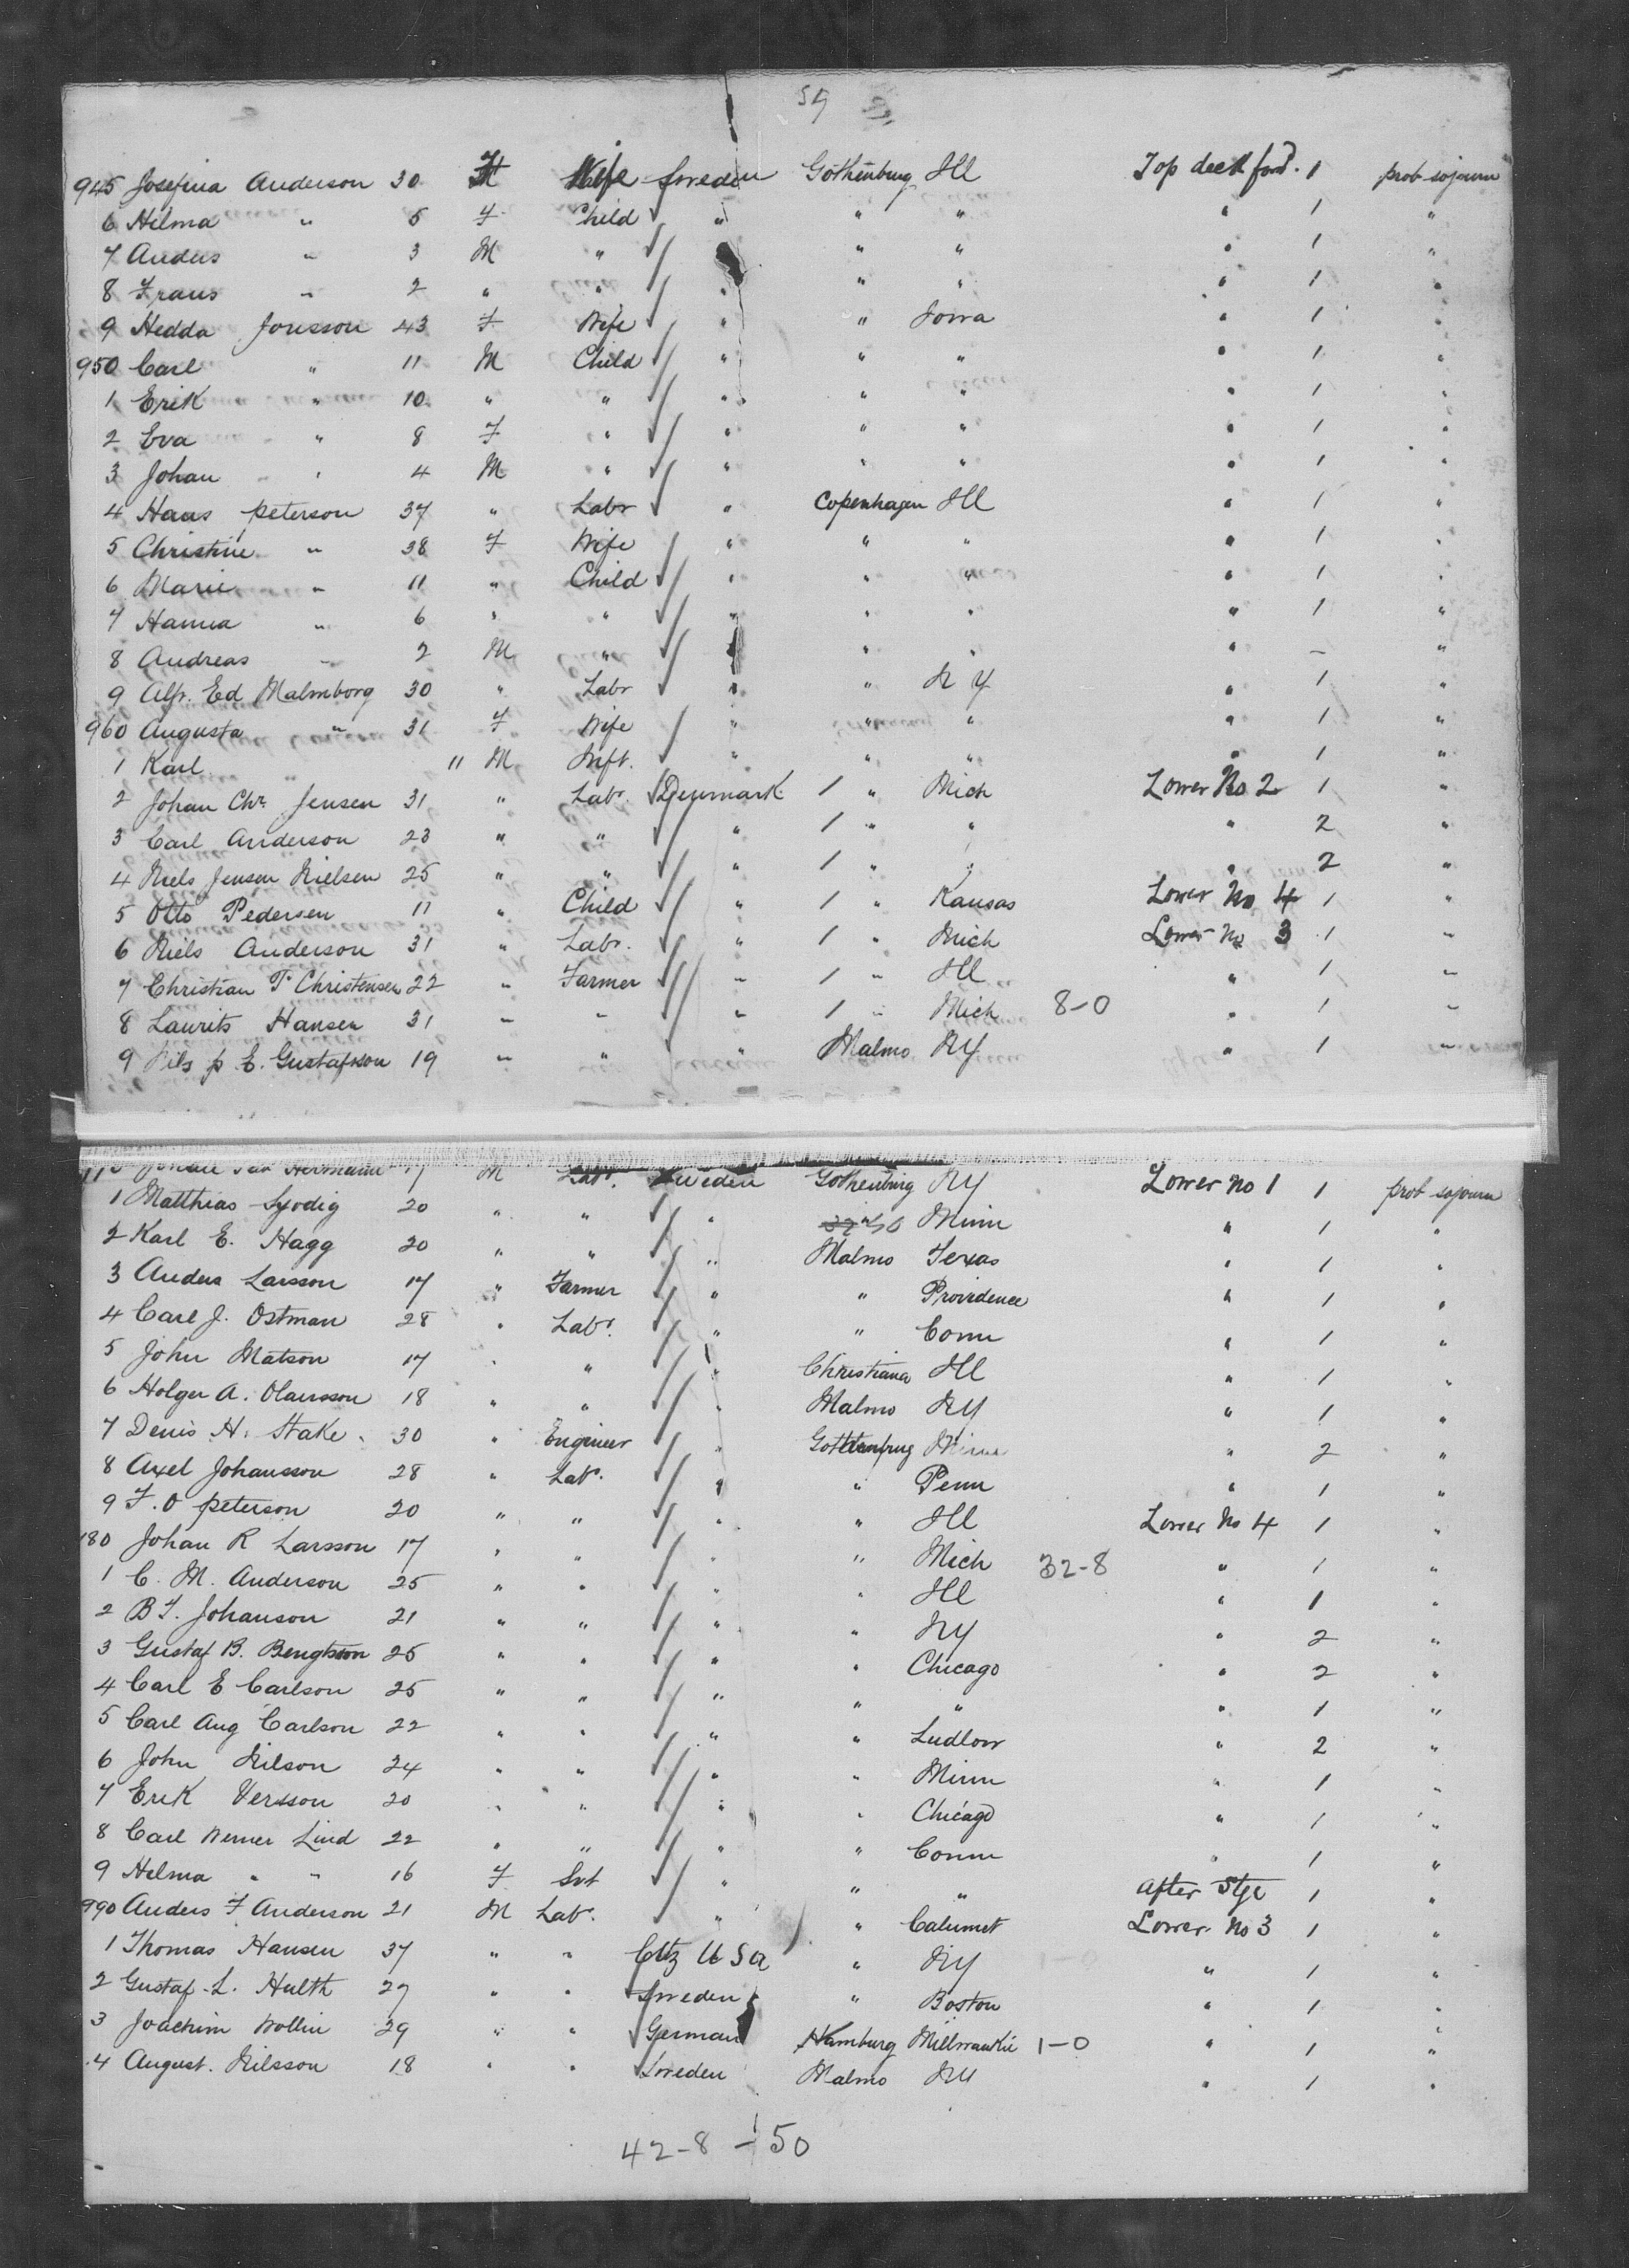 59
945 Josefina Anderson 30 F Wife Sweden Gothenburg Ill Top deck ford. 1 prob sojourn
6 Hilma " 5 F Child " " " " 1 "
7 Anders " 3 M " " " " " 1 "
8 Frans " 2 " " " " " " 1 "
9 Hedda Jonsson 43 F Wife " " Iowa " 1 "
950 Carl " 11 M Child " " " " 1 "
1 Erik " 10 " " " " " " 1 "
2 Eva " 8 F " " " " " 1 "
3 Johan " 4 M " " " " " 1 "
4 Hans peterson 37 " Labr " Copenhagen Ill " 1 "
5 Christine " 38 F Wife " " " " 1 "
6 Marie " 11 " Child " " " " 1 "
7 Hanna " 6 " " " " " " 1 "
8 Andreas " 2 M " " " " " – "
9 Alfr. Ed Malmborg 30 " Labr " " N Y " 1 "
960 Augusta " 31 F Wife " " " " 1 "
1 Karl 11 M Inft. " " " " 1 "
2 Johan Chr. Jensen 31 " Labr. Denmark 1 " Mich Lower No 2 1 "
3 Carl Anderson 23 " " " 1 " " " 2 "
4 Niels Jensen Nielsen 25 " " " 1 " " " 2 "
5 Otto Pedersen 11 " Child " 1 " Kansas Lower No 4 1 "
6 Niels Anderson 31 " Labr. " 1 " Mich Lower No 3 1 "
7 Christian T Christensen 22 " Farmer " 1 " Ill " 1 "
8 Laurits Hansen 31 " " " 1 " Mich 8-0 " 1 "
9 Nils p E. Gustafsson 19 " " " Malmo NY " 1 "
Johan Hermann 17 M Labr. Sweden Gothenburg NY Lower No 1 1 prob sojourn
1 Matthias 20 " " " " Minn " 1 "
2 Karl E. Hagg 20 " " " Malmo Texas " 1 "
3 Anders Larsson 17 " Farmer " " Providence " 1 "
4 Carl J. Ostman 28 " Labr. " " Conn " 1 "
5 John Matson 17 " " " Christiana Ill " 1 "
6 Holger A. Olausson 18 " " " Malmo NY " 1 "
7 Denis H. Stake 30 " Engineer " Gothenburg Minn " 2 "
8 Axel Johansson 28 " Labr. " " Penn " 1 "
9 F. O peterson 20 " " " " Ill Lower No 4 1 "
180 Johan R Larsson 17 " " " " Mich 32-8 " 1 "
1 C. M. Anderson 25 " " " " Ill " 1 "
2 B F. Johanson 21 " " " " NY " 2 "
3 Gustaf B. Bengtson 25 " " " " Chicago " 2 "
4 Carl E Carlson 25 " " " " " " 1 "
5 Carl Aug Carlson 22 " " " " Ludlow " 2 "
6 John Nilson 24 " " " " Minn " 1 "
7 Erik Versson 20 " " " " Chicago " 1 "
8 Carl Werner Lind 22 " " " " Conn " 1 "
9 Helma " " 16 F Svt " " " After Stge 1 "
990 Anders F Anderson 21 M Labr. " " Calumet Lower No 3 1 "
1 Thomas Hansen 37 " " Ctz U S a " NY 1-0 " 1 "
2 Gustaf L. Hulth 27 " " Sweden " Boston " 1 "
3 Joachim Wollin 29 " " German Hamburg Millwaukie 1-0 " 1 "
4 August. Nilsson 18 " " Sweden Malmo NY " 1 "
42-8-50